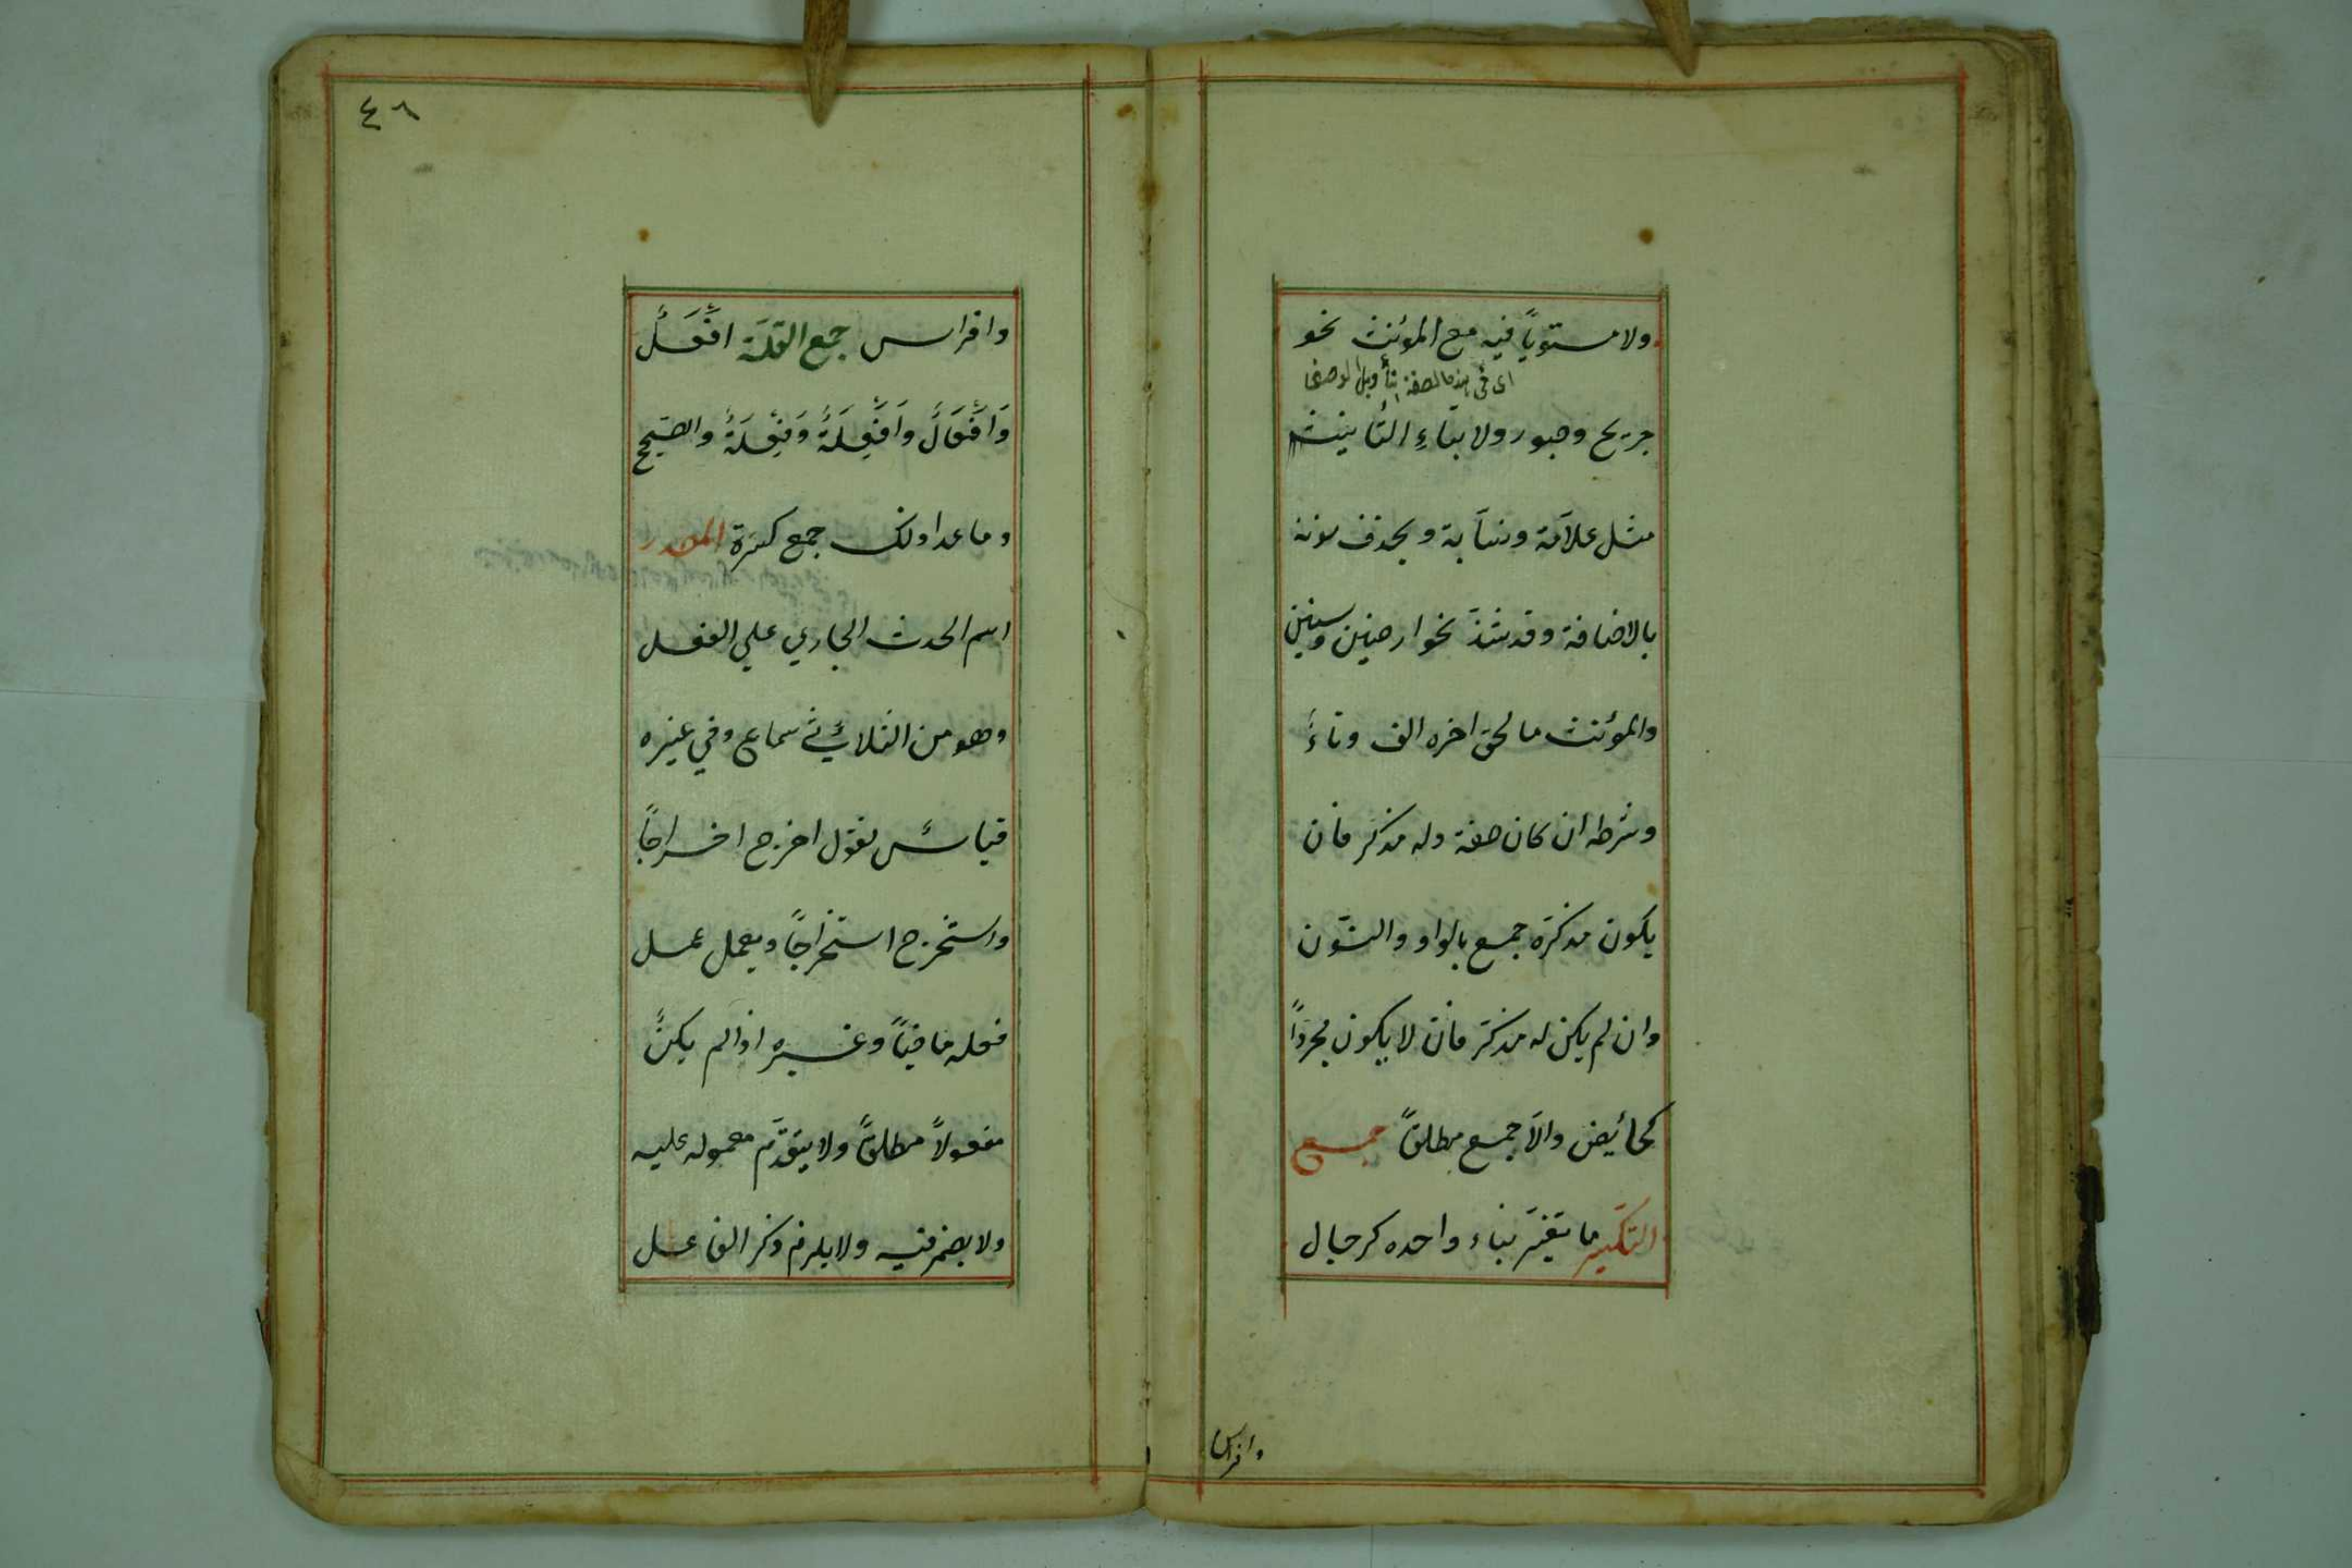 ولا مستوياً فيه مع المؤنث نحو
اى فى هذه الصفة بتأويل الوصف
جريح وصبور ولا بتاءِ التأنيث
مثل علاّمة ونسّابة ويحذف نونه
بالاضافة وقد شذّ نحو ارضين وسنين
والمؤنث ما لحق اخره الف وتاءٌ
وشرطه ان كان صفة وله مذكر فان
يكون مذكره جمع بالواو والنّون
وان لم يكن له مذكّر فان لا يكون مجرداً
كحائض والاّ جمع مطلقاً جمع
التكسير ما تغيّر بناء واحده كرجال
وافراس
٤٦
وافراس جمع القلّة افْعُلٌ
وَاَفْعَالٌ وَاَفْعِلَةٌ وَفِعْلَةٌ والصحيح
وما عدا ذلك جمع كثرة المصدر
اسم الحدث الجاري علي الفعل
وهو من الثلاثي سماع وفي غيره
قياس تقول اخرج اخراجاً
واستخرج استخراجاً ويعمل عمل
فعله ماضياً وغيره اذا لم يكن
مفعولاً مطلقاً ولا يتقدّم معموله عليه
ولا يضمر فيه ولا يلزم ذكر الفاعل